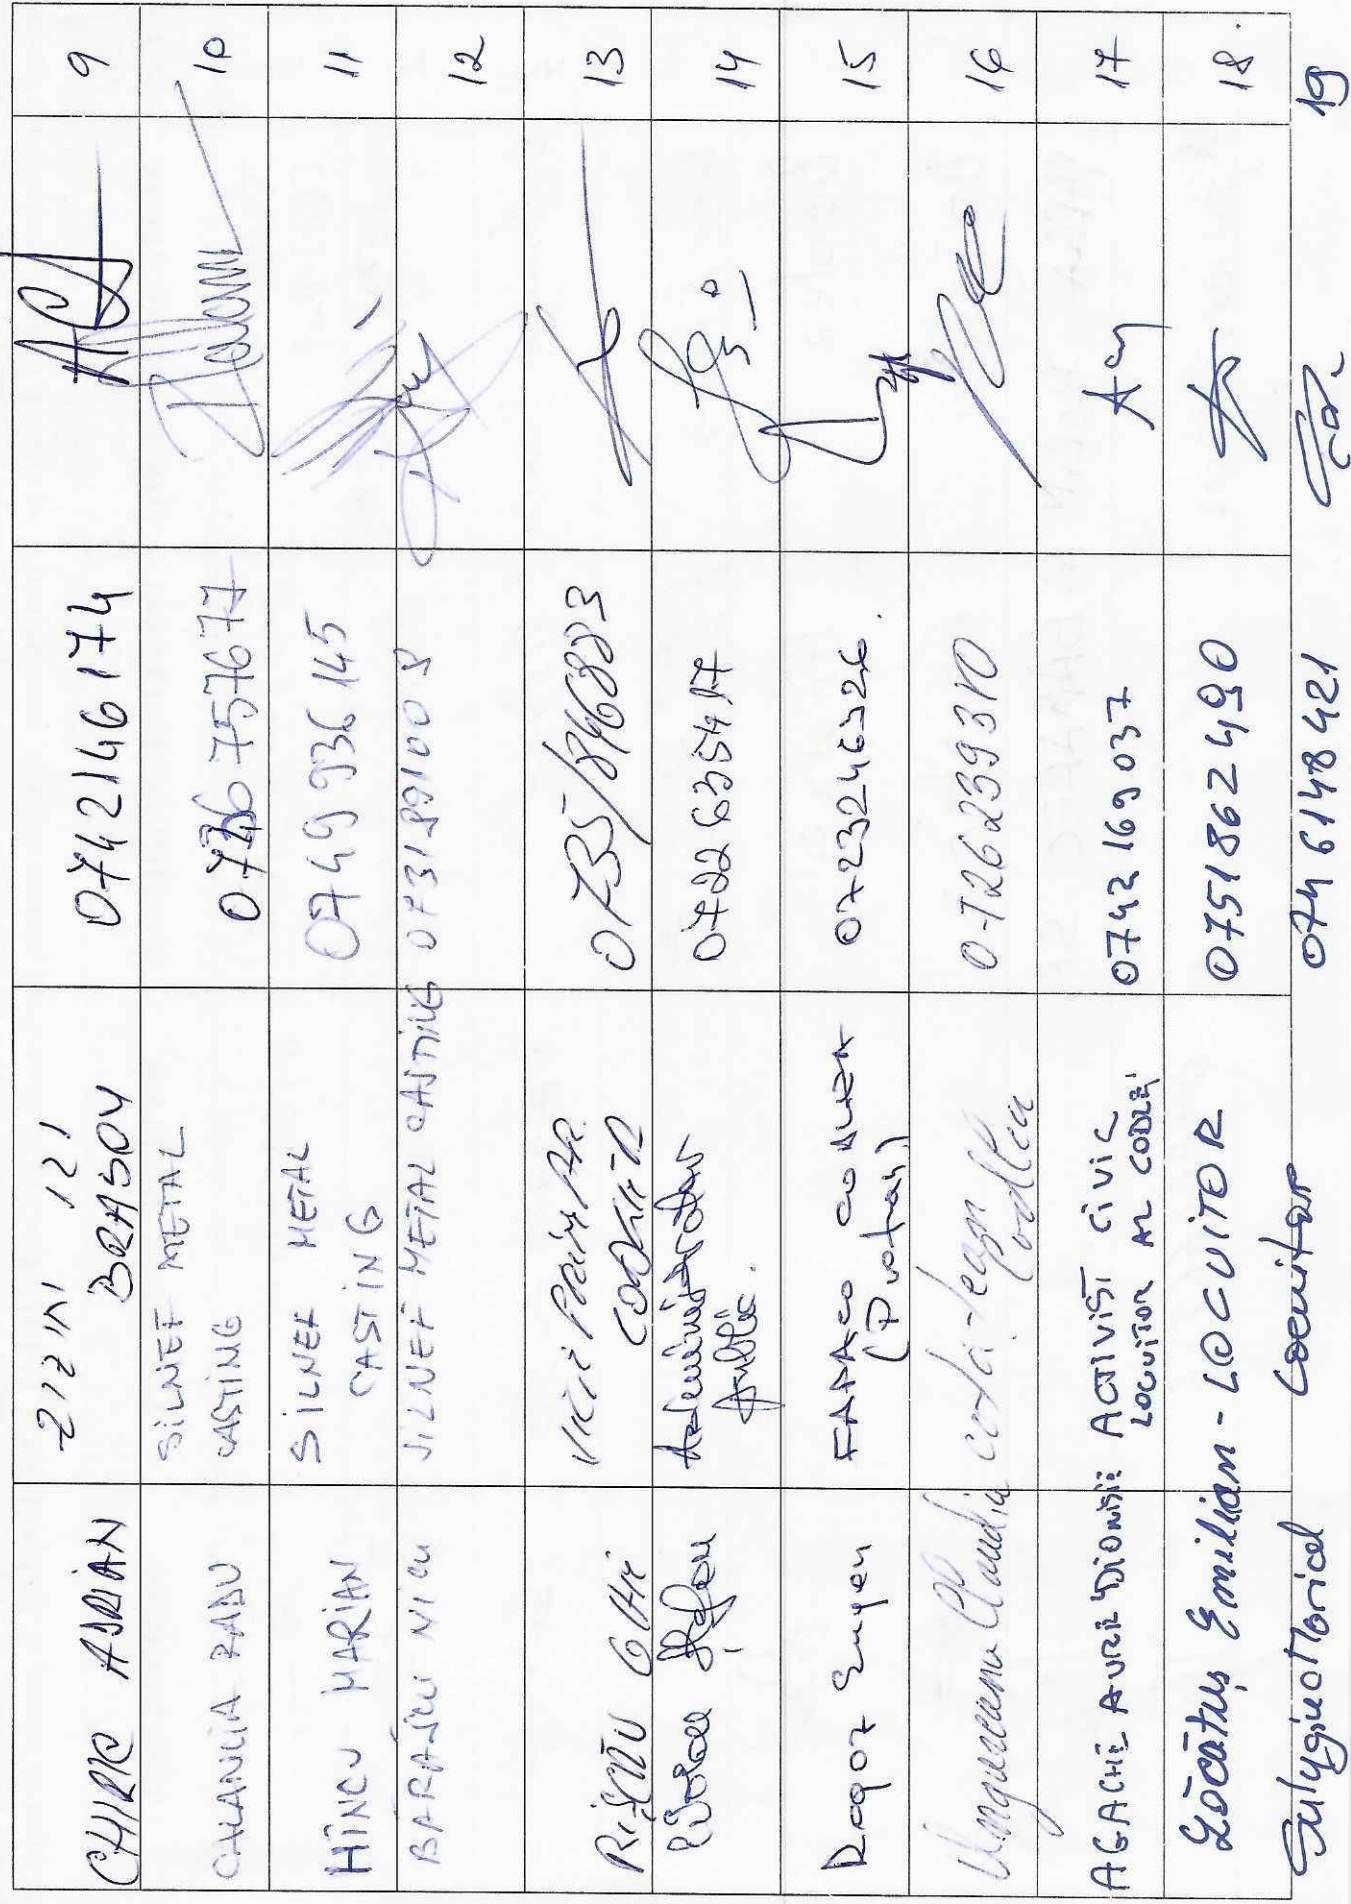 CHIRIC ADRIAN ZIZIN 121 BRASOV 0742146174 9
CHLANCIA RADU SILNEF METAL CASTING 0736757677 10
HÎNCU MARIAN SILNEF METAL CASTING 0749936145 11
BĂRAȘCU NICU SILNEF METAL CASTING 0731891008 12
GHE VICE PRIMAR CODLEA 0735/846883 13
Administrator public. 0722635417 14
Rogoz Eugen 0723246326. 15
Ungureanu Claudia Codlea 0726239310 16
AGACHE AUREL DIONISIE ACTIVIST CIVIC LOCUITOR AL CODLEI 0742169037 17
Lăcătuș Emilian - LOCUITOR 0751862490 18.
Locuitor 0746148421 19